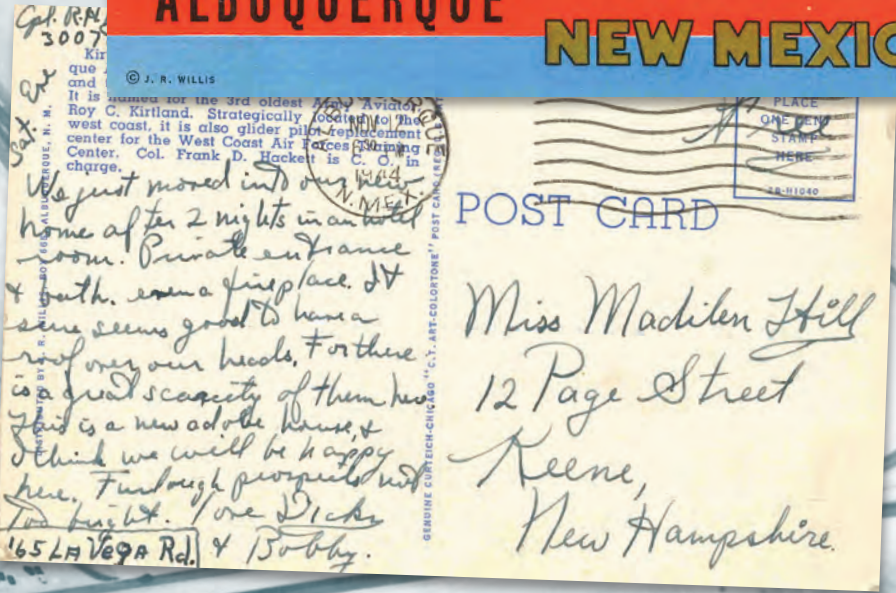 ALBUQUERQUE
NEW MEXIC
© J. R. WILLIS
Cpl. R.
3007
Sat. Eve
Kir
que
and
It is named for the 3rd oldest Army Aviator,
Roy C. Kirtland. Strategically located to the
west coast, it is also glider pilot replacement
center for the West Coast Air Forces Training
Center. Col. Frank D. Hackett is C. O. in
charge.
We just moved into our new
home after 2 nights in an hotel
room. Private entrance
& bath. even a fireplace. It
sure seems good to have a
roof over our heads. For there
is a great scarcity of them here
This is a new adobe house, &
I think we will be happy
here. Furlough prospects not
too bright. Love Dicky
165 LA VEGA Rd. & Bobby.
DISTRIBUTED BY J. R. WILLIS, BOX 666, ALBUQUERQUE, N. M.
GENUINE CURTEICH-CHICAGO "C.T. ART-COLORTONE" POST CARD
NOV
1944
N. MEX.
Free
PLACE
ONE CENT
STAMP
HERE
2B-H1040
POST CARD
Miss Madilen Hill
12 Page Street
Keene,
New Hampshire.